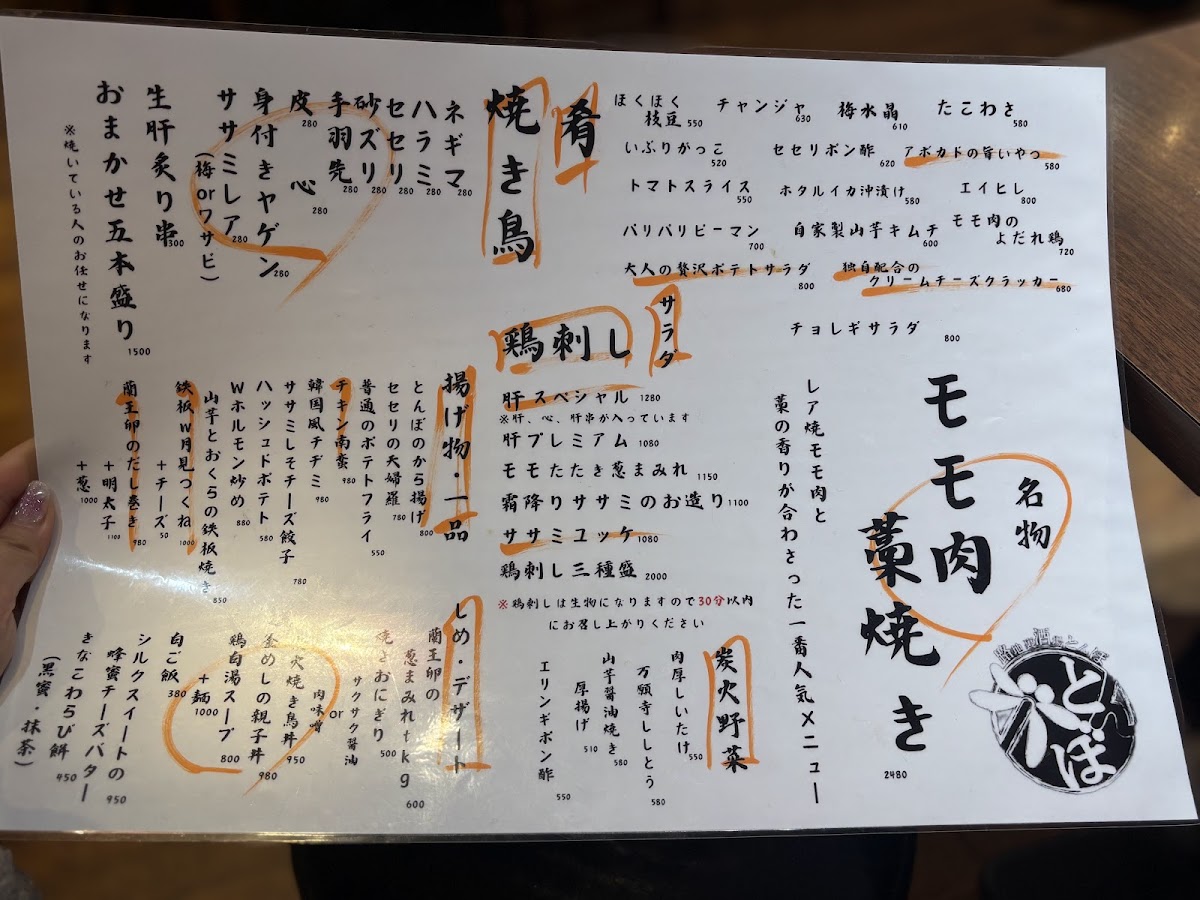 名物
モモモ肉
藁焼き
2480
レア焼モモ肉と
藁の香りが合わさった一番人気メニュー
とんぼ
肴
たこわさ 580
梅水晶 610
チャンジャ 630
ほくほく
枝豆 550
アボカドの旨いやつ 580
セセリポン酢 620
いぶりがっこ 520
エイヒレ 800
ホタルイカ沖漬け 580
トマトスライス 550
モモ肉の
よだれ鶏 720
自家製山芋キムチ 600
バリバリピーマン 700
独自配合の
クリームチーズクラッカー 680
大人の贅沢ポテトサラダ 800
サラダ
チョレギサラダ 800
焼き鳥
ネギマ 280
ハラミ 280
セセリ 280
砂ズリ 280
手羽先 280
皮 280
心 280
身付きヤゲン 280
ササミレア 280
(梅orワサビ)
生肝炙り串 300
おまかせ五本盛り 1500
※焼いている人のお任せになります
鶏刺し
肝スペシャル 1280
※肝、心、肝串が入っています
肝プレミアム 1080
モモたたき葱まみれ 1150
霜降りササミのお造り 1100
ササミユッケ 1080
鶏刺し三種盛 2000
※鶏刺しは生物になりますので30分以内
にお召し上がりください
揚げ物・一品
とんぼのから揚げ 800
セセリの天婦羅 780
普通のポテトフライ 550
チキン南蛮 980
韓国風チヂミ 980
ササミしそチーズ餃子 780
ハッシュドポテト 580
Wホルモン炒め 880
山芋とおくらの鉄板焼き 850
鉄板w月見つくね 1000
+チーズ 50
蘭王卵のだし巻き 980
+明太子 1100
+葱 1000
炭火野菜
肉厚しいたけ 550
万願寺ししとう 580
山芋醤油焼き 580
厚揚げ 510
エリンギポン酢 550
しめ・デザート
蘭王卵の
葱まみれtkg 600
焼きおにぎり 500
サクサク醤油
or
肉味噌
炙焼き鳥丼 950
釜めしの親子丼 980
鶏白湯スープ 800
+麺 1000
白ご飯 380
シルクスイートの
蜂蜜チーズバター 950
きなこわらび餅 450
(黒蜜・抹茶)